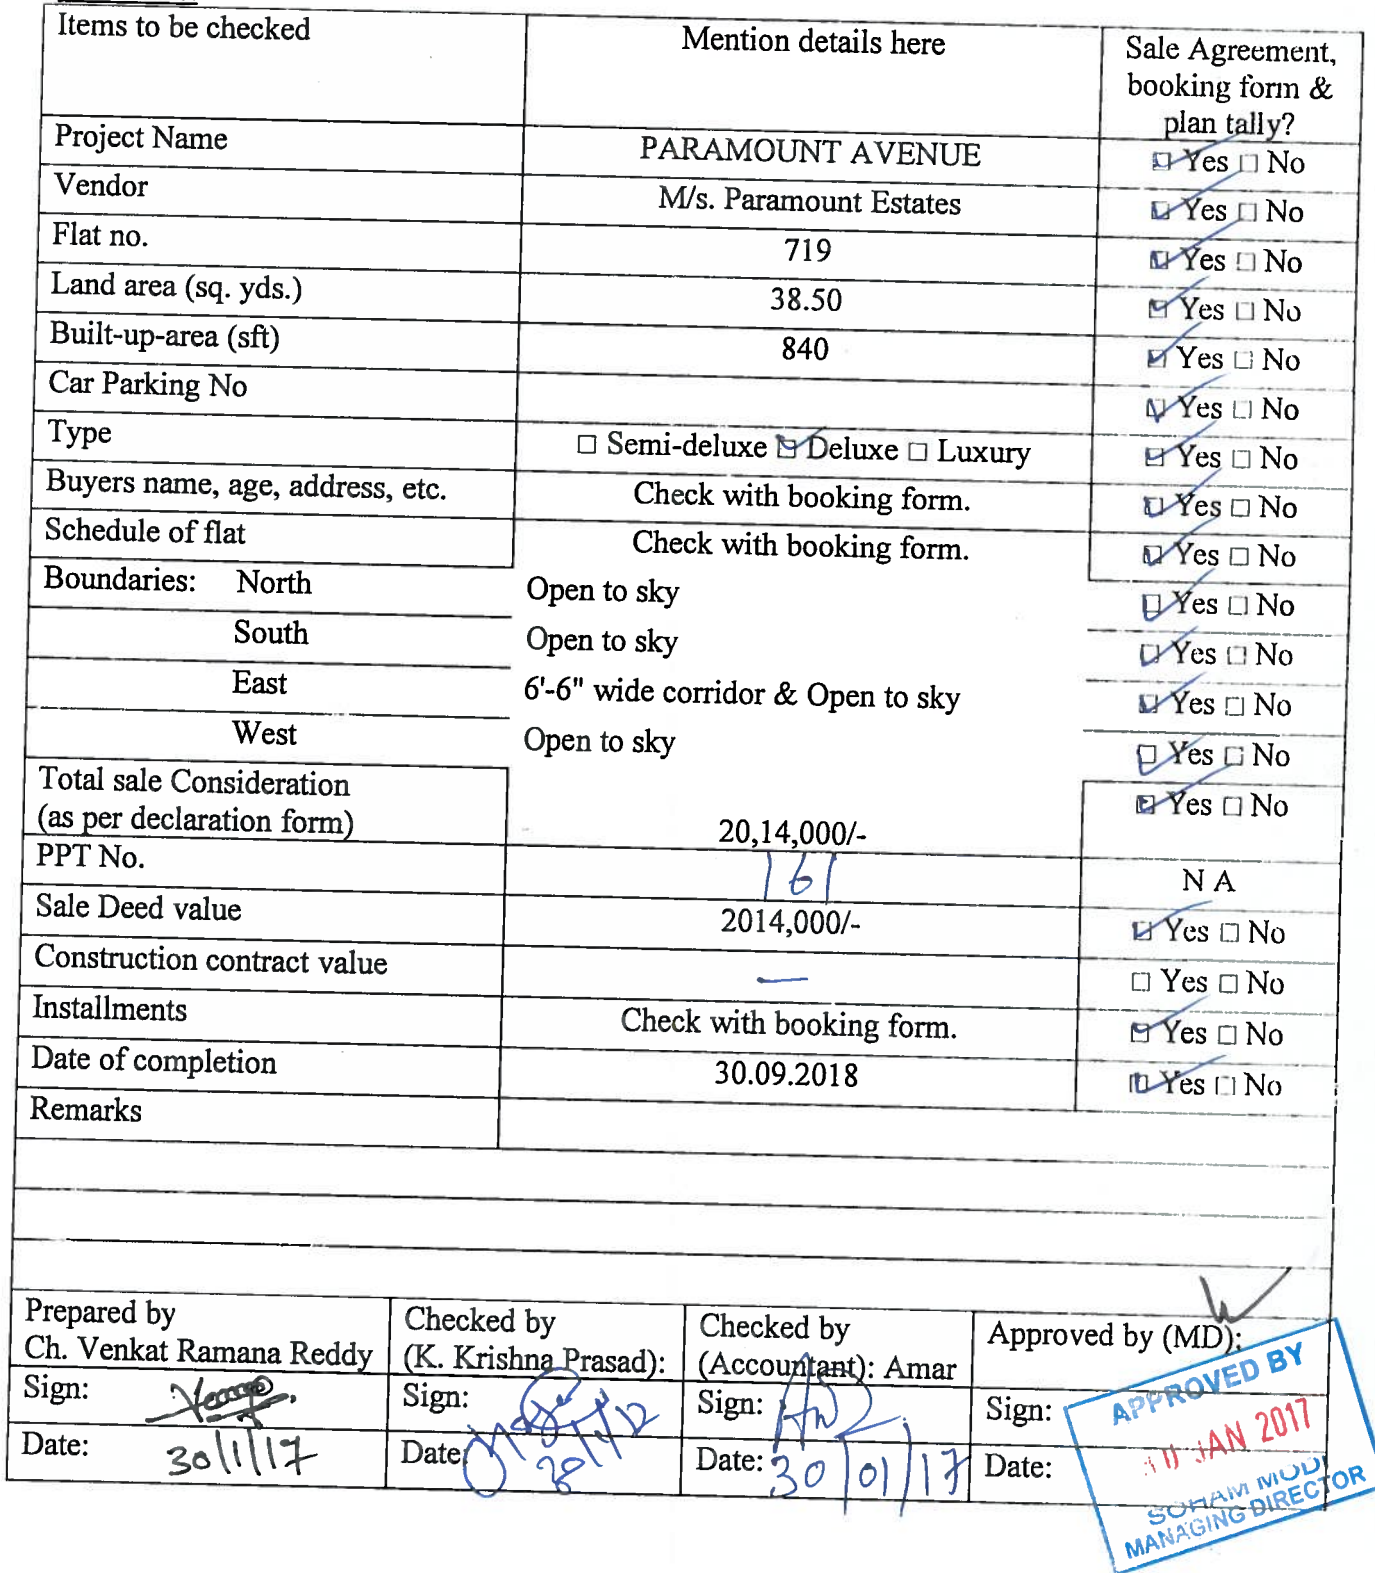 Items to be checked
Mention details here
Sale Agreement,
booking form &
plan tally?
Project Name
PARAMOUNT AVENUE
☑ Yes □ No
Vendor
M/s. Paramount Estates
☑ Yes □ No
Flat no.
719
☑ Yes □ No
Land area (sq. yds.)
38.50
☑ Yes □ No
Built-up-area (sft)
840
☑ Yes □ No
Car Parking No
☑ Yes □ No
Type
□ Semi-deluxe ☑ Deluxe □ Luxury
☑ Yes □ No
Buyers name, age, address, etc.
Check with booking form.
☑ Yes □ No
Schedule of flat
Check with booking form.
☑ Yes □ No
Boundaries: North
Open to sky
☑ Yes □ No
South
Open to sky
☑ Yes □ No
East
6'-6" wide corridor & Open to sky
☑ Yes □ No
West
Open to sky
☑ Yes □ No
Total sale Consideration
(as per declaration form)
20,14,000/-
☑ Yes □ No
PPT No.
161
N A
Sale Deed value
2014,000/-
☑ Yes □ No
Construction contract value
—
□ Yes □ No
Installments
Check with booking form.
☑ Yes □ No
Date of completion
30.09.2018
☑ Yes □ No
Remarks
Prepared by
Ch. Venkat Ramana Reddy
Checked by
(K. Krishna Prasad):
Checked by
(Accountant): Amar
Approved by (MD):
Sign:
Sign:
Sign:
Sign:
Date: 30/1/17
Date:
Date: 30/01/17
Date:
APPROVED BY
JAN 2017
SOHAM MODI
MANAGING DIRECTOR